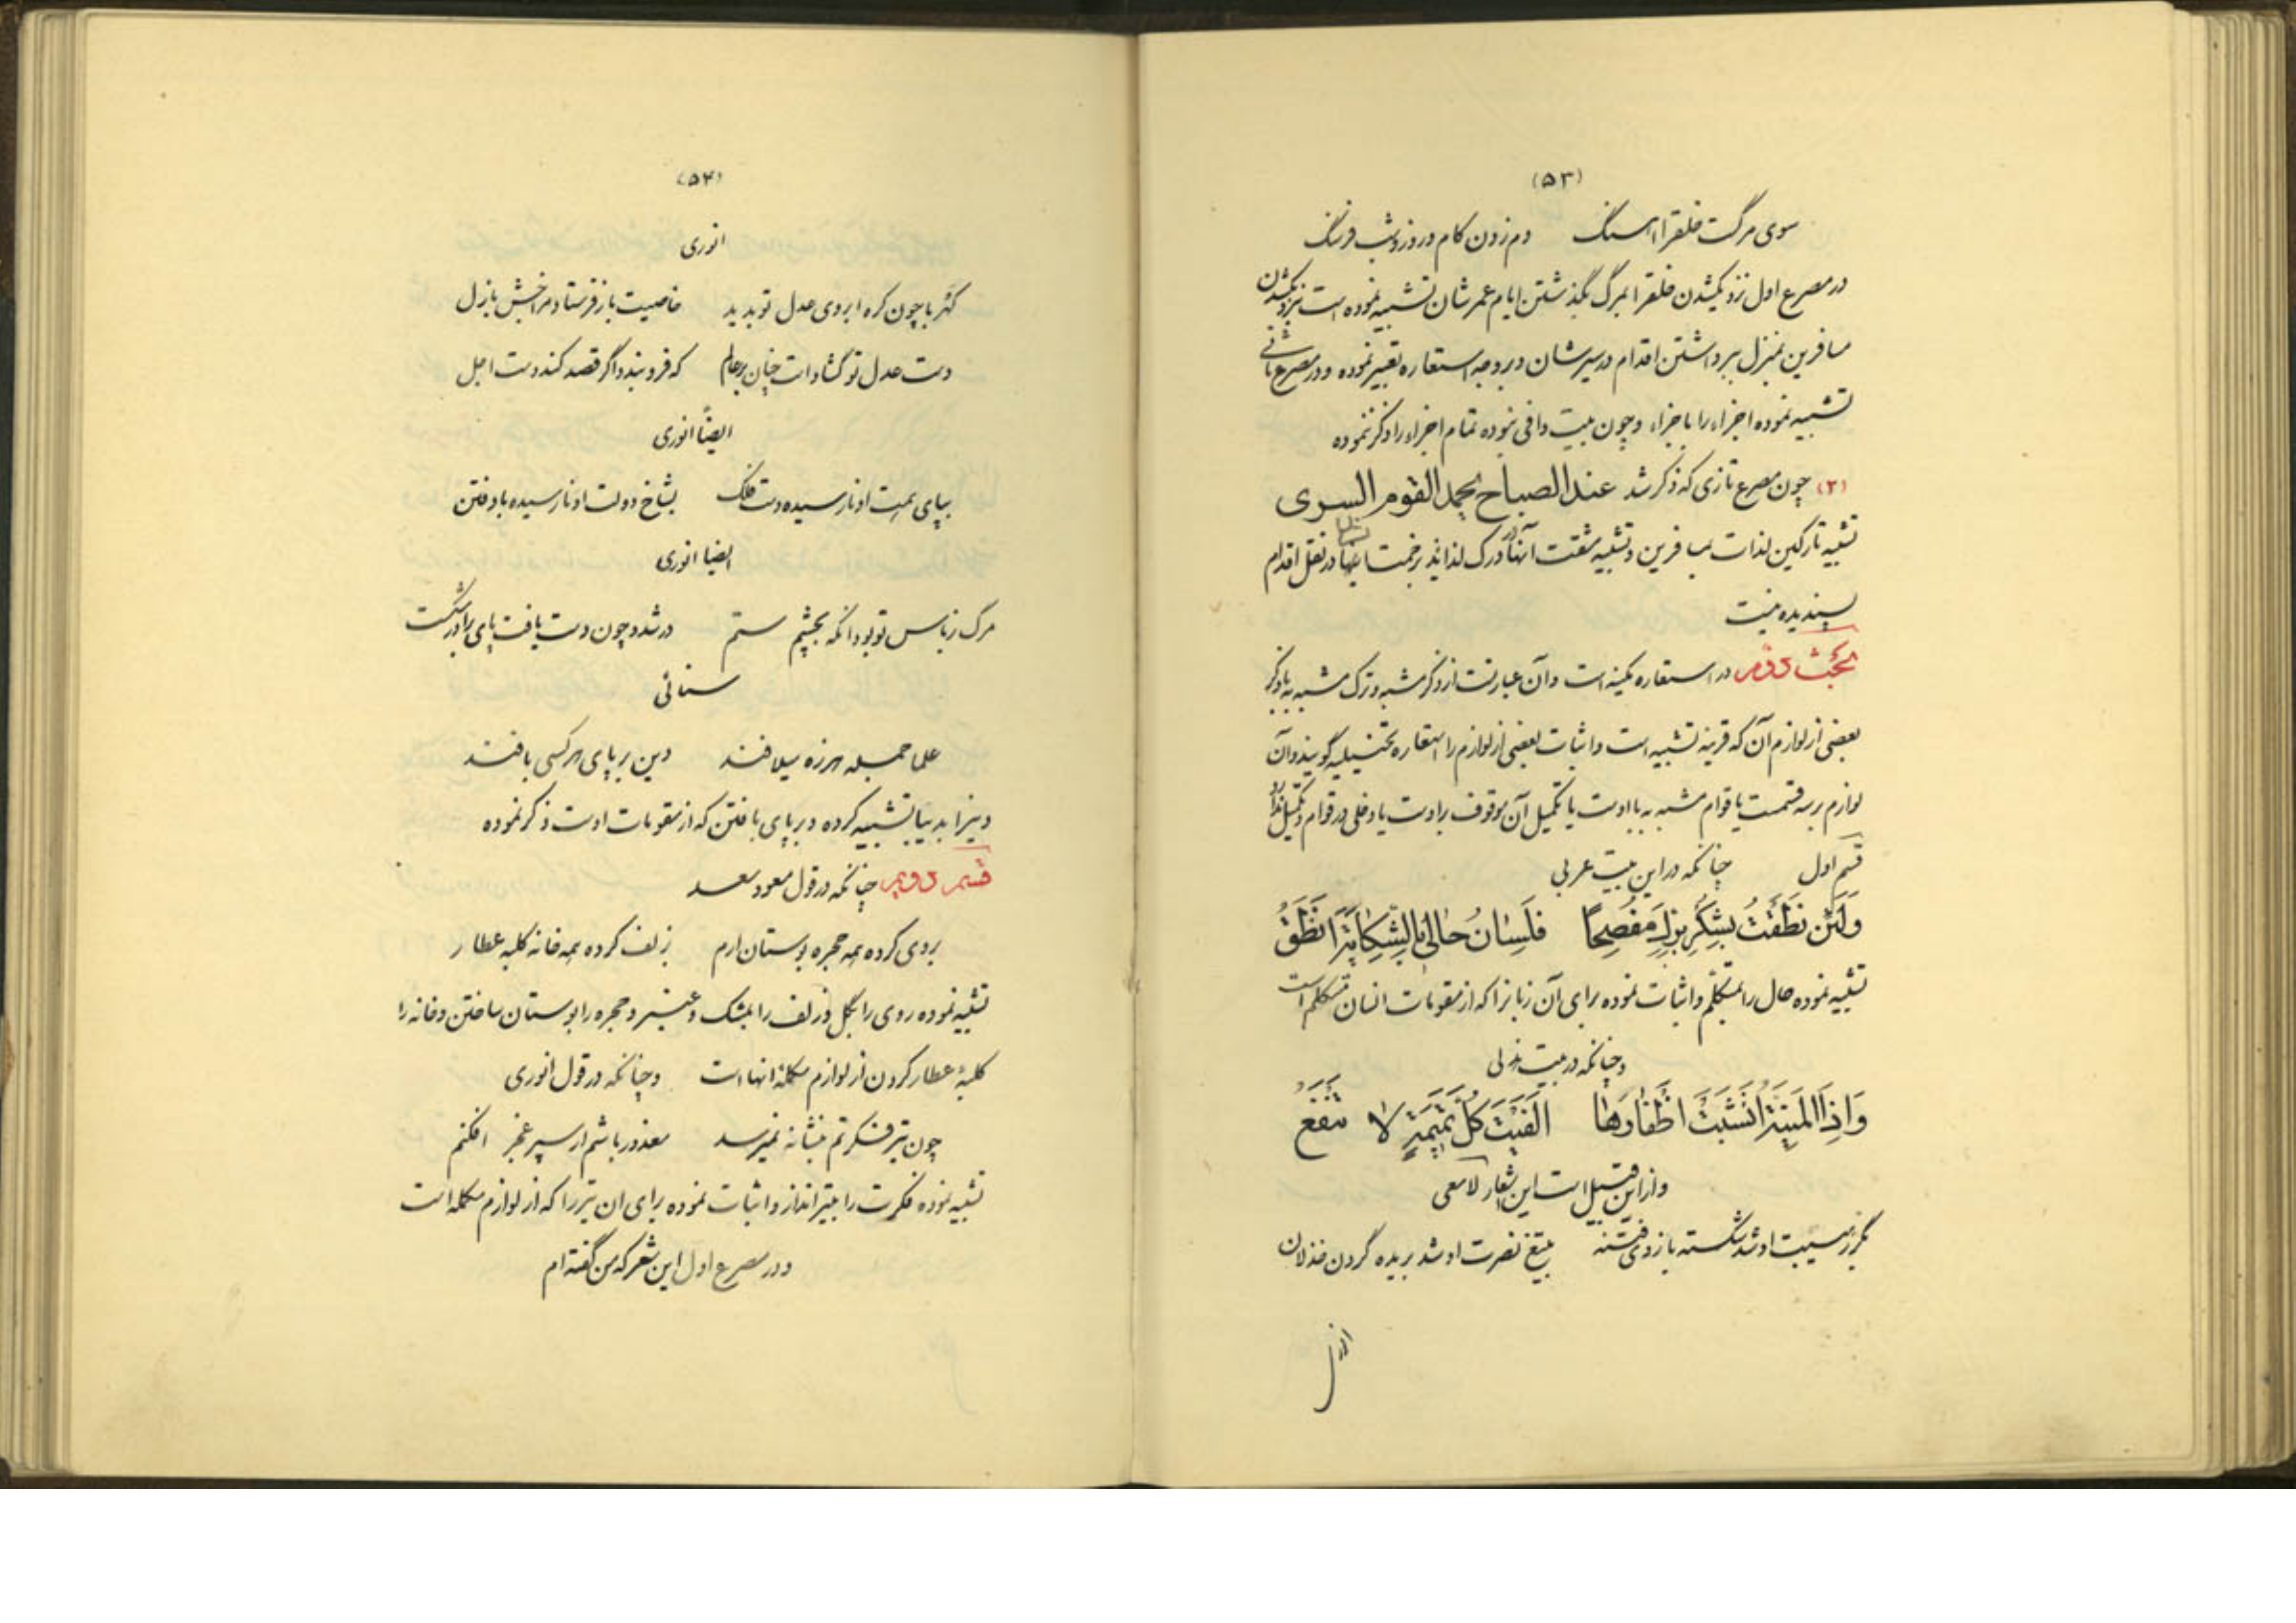 (۵۳)
سوی مرگست خلقرا اهنگ دم زدن کام و روز و شب فرسنگ
در مصرع اول نزدیکشدن خلقرا بمرگ بگذشتن ایام عمرشان تشبیه نموده است بنزدیکشدن
مسافرین بمنزل ببرداشتن اقدام در سیرشان و بر وجه استعاره تعبیر نموده و در مصرع ثانی
تشبیه نموده اجزاء را باجزاء و چون بیت وافی نبوده تمام اجزاء را ذکر ننموده
(۲) چون مصرع تازی که ذکر شد عند الصباح یحمد القوم السری
تشبیه تارکین لذات بمسافرین و تشبیه مشقت آنها در ترک لذایذ بزحمت اینها در نقل اقدام
پسندیده نیست
مبحث دوم در استعاره مکینه است و آن عبارتست از ذکر مشبه و ترک مشبه به با ذکر
بعضی از لوازم آن که قرینه تشبیه است و اثبات بعضی از لوازم را استعاره تخییلیه گویند و آن
لوازم بر سه قسمست یا قوام مشبه به با اوست یا تکمیل آن موقوف براوست یا دخلی در قوام و تکمیل ندارد
قسم اول چنانکه در این بیت عربی
وَلَئِنْ نَطَقْتُ بِشُكْرِ بِرِّكَ مُفْصِحًا فَلِسَانُ حَالِي بِالشِّكَايَةِ اَنْطَقُ
تشبیه نموده حال را بمتکلم و اثبات نموده برای آن زبانرا که از مقومات انسان متکلم است
و چنانکه در بیت هذلی
وَاِذَا الْمَنِيَّةُ اَنْشَبَتْ اَظْفَارَهَا اَلْفَيْتَ كُلَّ تَمِيمَةٍ لَا تَنْفَعُ
و از این قبیل است این اشعار لامعی
بگرز هیبت او شد شکسته بازوی فتنه بتیغ نصرت او شد بریده گردن خذلان
(۵۴)
انوری
کهربا چون گره ابروی عدل تو بدید خاصیت باز فرستاد مراخش بازل
دست عدل تو گشاد است چنان بر عالم که فرو بندد اگر قصد کند دست اجل
ایضاً انوری
بپای همت او نارسیده دست فلک بشاخ دولت او نارسیده باد فتن
ایضا انوری
مرگ ز باس تو بود انکه بچشم ستم در شد و چون دست یافت پای برادر شکست
سنائی
علما جمله هرزه میلافند دین بر پای هر کسی بافند
دینرا بدیبا تشبیه کرده و بر پای بافتن که از مقومات اوست ذکر نموده
قسم دویم چنانکه در قول مسعود سعد
بروی کرده همه حجره بوستان ارم بزلف کرده همه خانه کلبه عطار
تشبیه نموده روی را بگل و زلف را بمشک و عنبر و حجره را بوستان ساختن و خانه را
کلبهٔ عطار کردن از لوازم مکملهٔ انها است و چنانکه در قول انوری
چون تیر فکرتم بنشانه نمیرسد معذور باشم ار سپر عجز افکنم
تشبیه نموده فکرت را بتیر انداز و اثبات نموده برای ان تیر را که از لوازم مکمله است
و در مصرع اول این شعر که من گفته ام